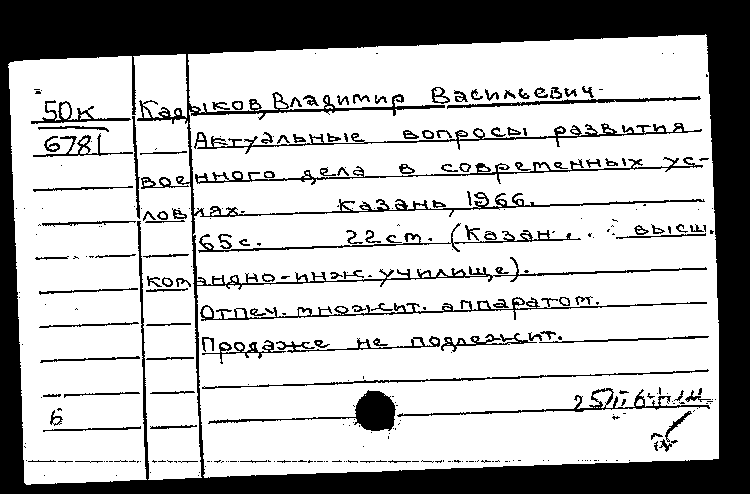 50к Кадыков, Владимир Васильевич.
6781 Актуальные вопросы развития
военного дела в современных ус-
ловиях. Казань, 1966.
65с. 22 ст. (Казан. . . высш.
командно-инж. училище).
Отпеч. множит. аппаратом.
Продаже не подлежит.
б